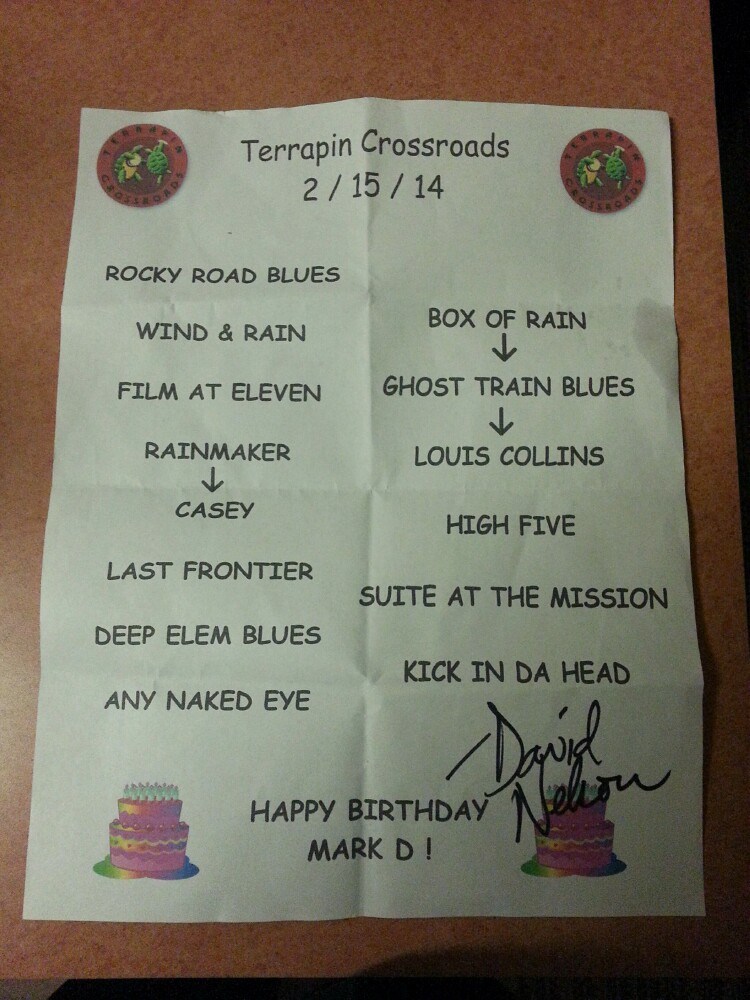 TERRAPIN CROSSROADS
Terrapin Crossroads
2 / 15 / 14
TERRAPIN CROSSROADS
ROCKY ROAD BLUES
WIND & RAIN
FILM AT ELEVEN
RAINMAKER
↓
CASEY
LAST FRONTIER
DEEP ELEM BLUES
ANY NAKED EYE
BOX OF RAIN
↓
GHOST TRAIN BLUES
↓
LOUIS COLLINS
HIGH FIVE
SUITE AT THE MISSION
KICK IN DA HEAD
David
Nelson
HAPPY BIRTHDAY
MARK D !